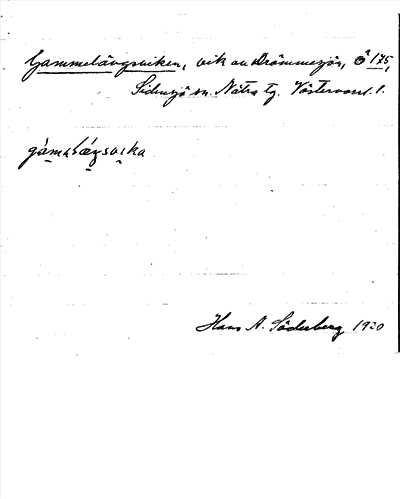 Gammelängsviken, vik av Drömmesjön, Ö 175,
Sidensjö sn. Nätra tg. Västernorrl. l.
gàmalǽŋsvıka
Hans A. Söderberg 1920